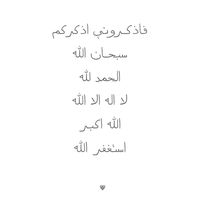 فاذكروني اذكركم
سبحان الله
الحمد لله
لا اله الا الله
الله اكبر
استغفر الله